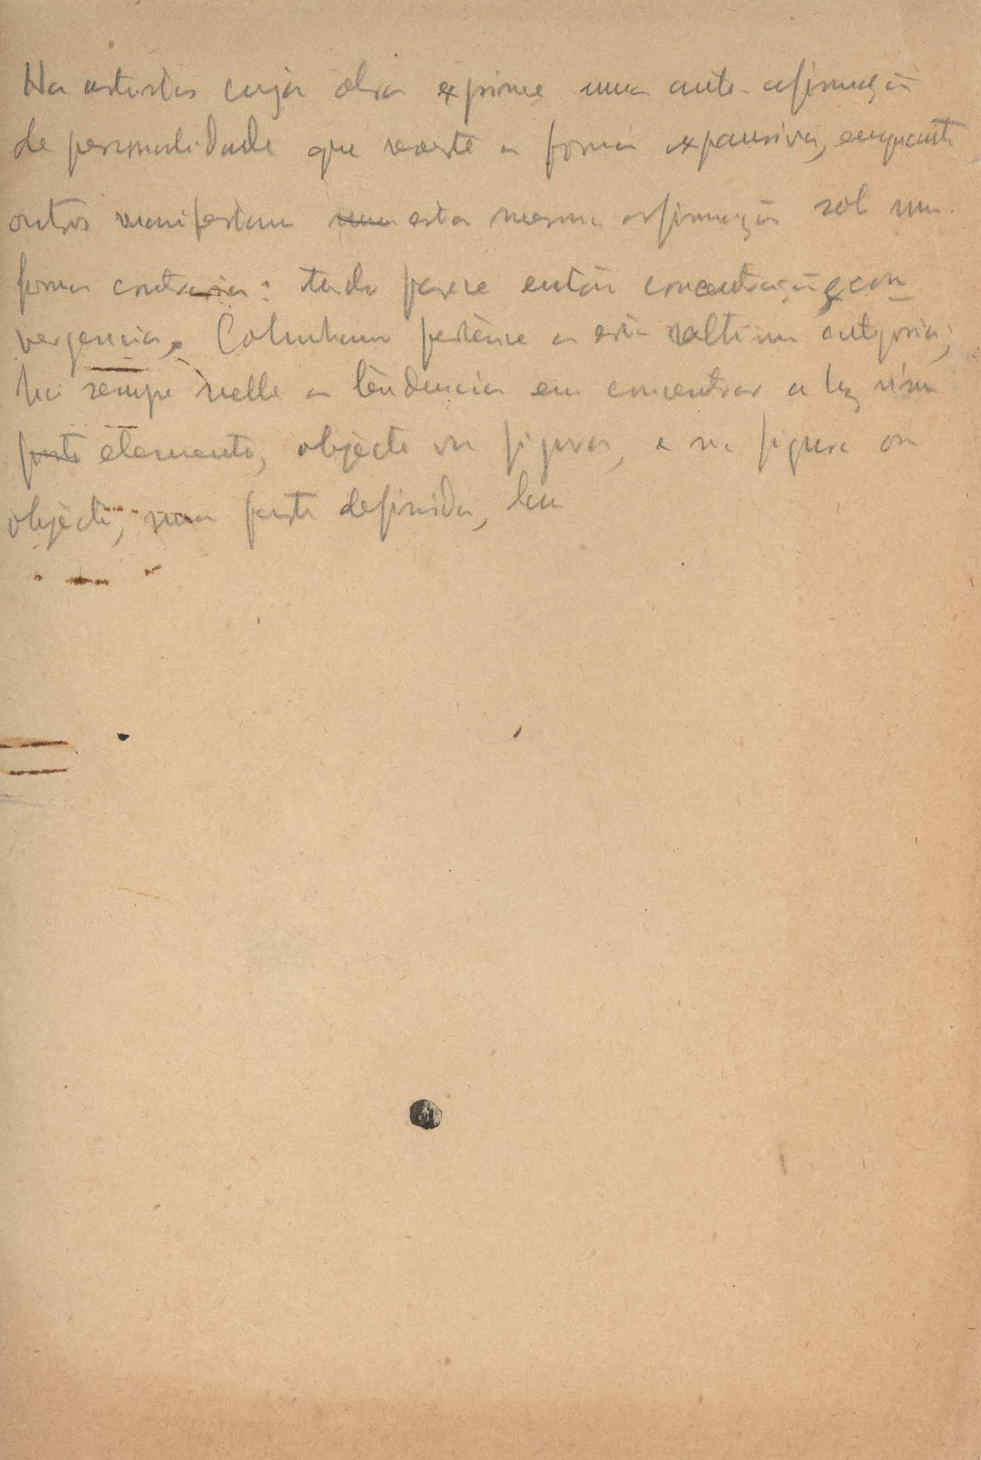 Ha artistas cuja obra exprime uma auto-afirmação
de personalidade que reveste a forma expansiva, enquanto
outros manifestam uma esta mesma afirmação sob uma
forma contraria: tudo parece então concentração e con
vergencia. Columbano pertence a esta ultima categoria;
ha sempre nelle a tendencia em concentrar a luz n'um
ponto elemento, objecto ou figura, e na figura ou
objecto, numa parte definida,